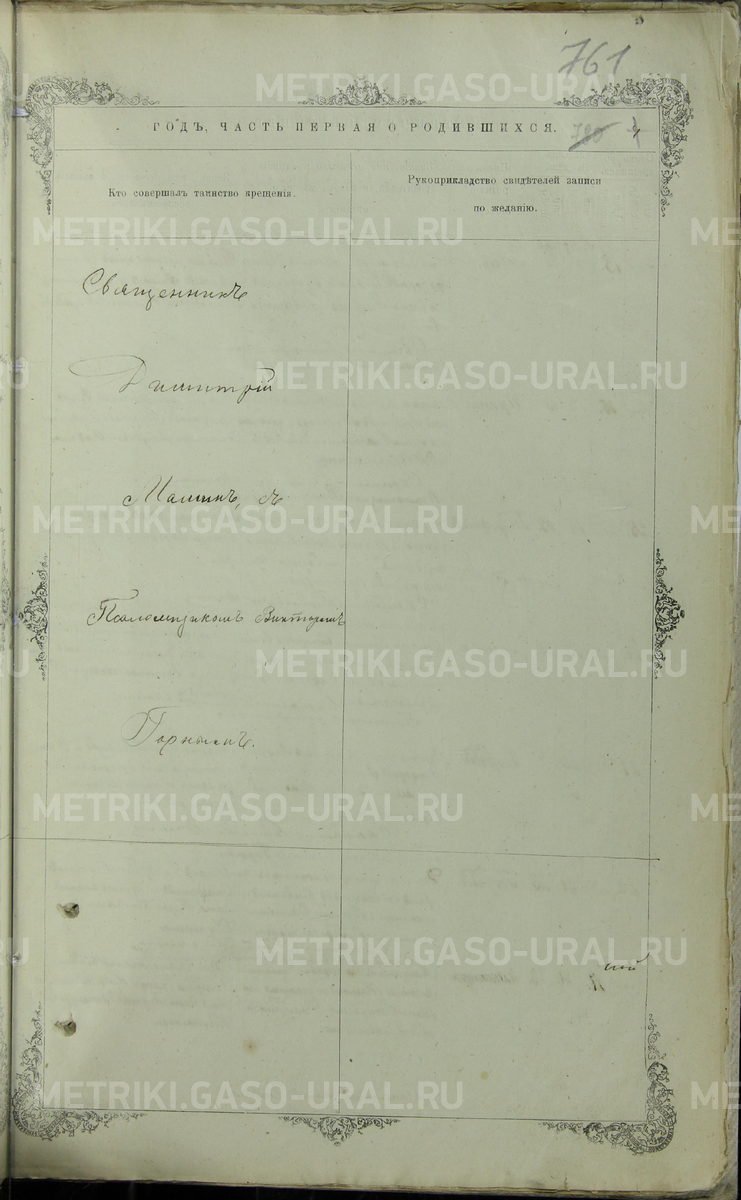 761
ГОДЪ, ЧАСТЬ ПЕРВАЯ О РОДИВШИХСЯ.
Кто совершалъ таинство крещенія.
Рукоприкладство свидѣтелей записи
по желанію.
Священникъ
Димитрій
Мамин, съ
Псаломщикомъ Викторомъ
Горнымъ.
METRIKI.GASO-URAL.RU